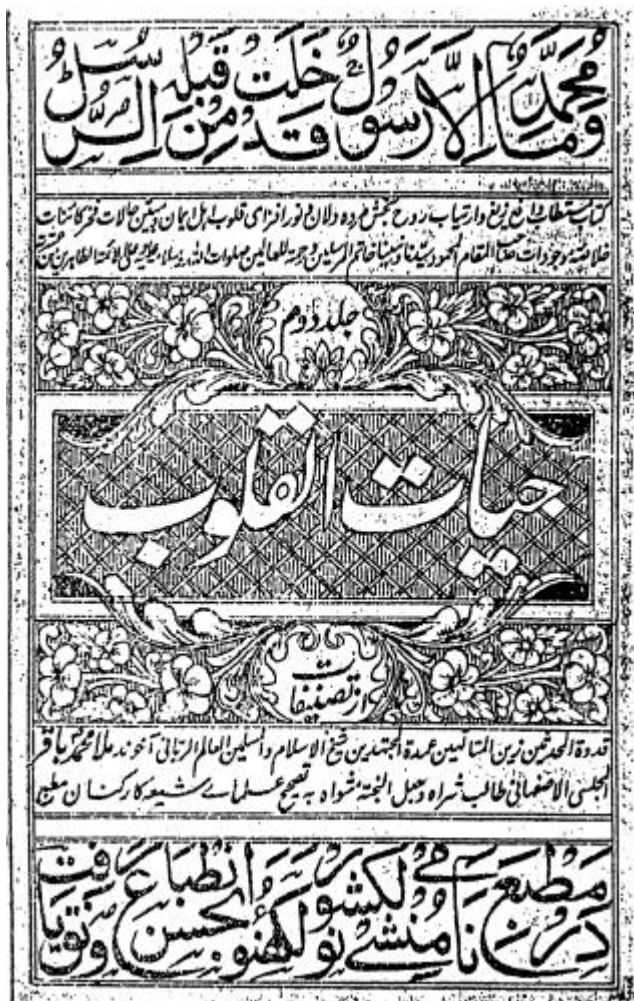 وما محمد الا رسول قد خلت من قبله الرسل
کتاب مستطاب دافع ریغ وارتیاب روح بخش مرده دلان و نور افزای قلوب اہل ایمان حالات فخر کائنات
خلاصۂ موجودات صاحب المقام المحمود سیدنا ونبینا خاتم المرسلین رحمة للعالمین صلوات اللہ وسلامہ علیہ وعلی الائمة الطاہرین من
جلد دوم
حیات القلوب
از تصنیفات
قدوة المحدثین زین المتالہین عمدة المجتہدین شیخ الاسلام والمسلمین العالم الربانی آخوند ملا محمد باقر
المجلسی الاصفہانی طاب ثراہ وجعل الجنة مثواہ بہ تصحیح علمائے شیعہ کارکنان مطبع
در مطبع نامی منشی نولکشور لکھنؤ بحسن وثوق انطباع یافت